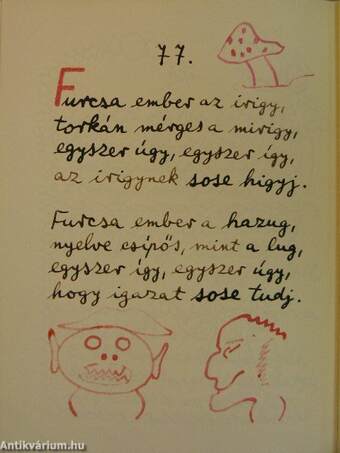 77.
Furcsa ember az irigy,
torkán mérges a mirigy,
egyszer úgy, egyszer így,
az irigynek sose higyj.
Furcsa ember a hazug,
nyelve csípős, mint a lug,
egyszer így, egyszer úgy,
hogy igazat sose tudj.
Antikvárium.hu